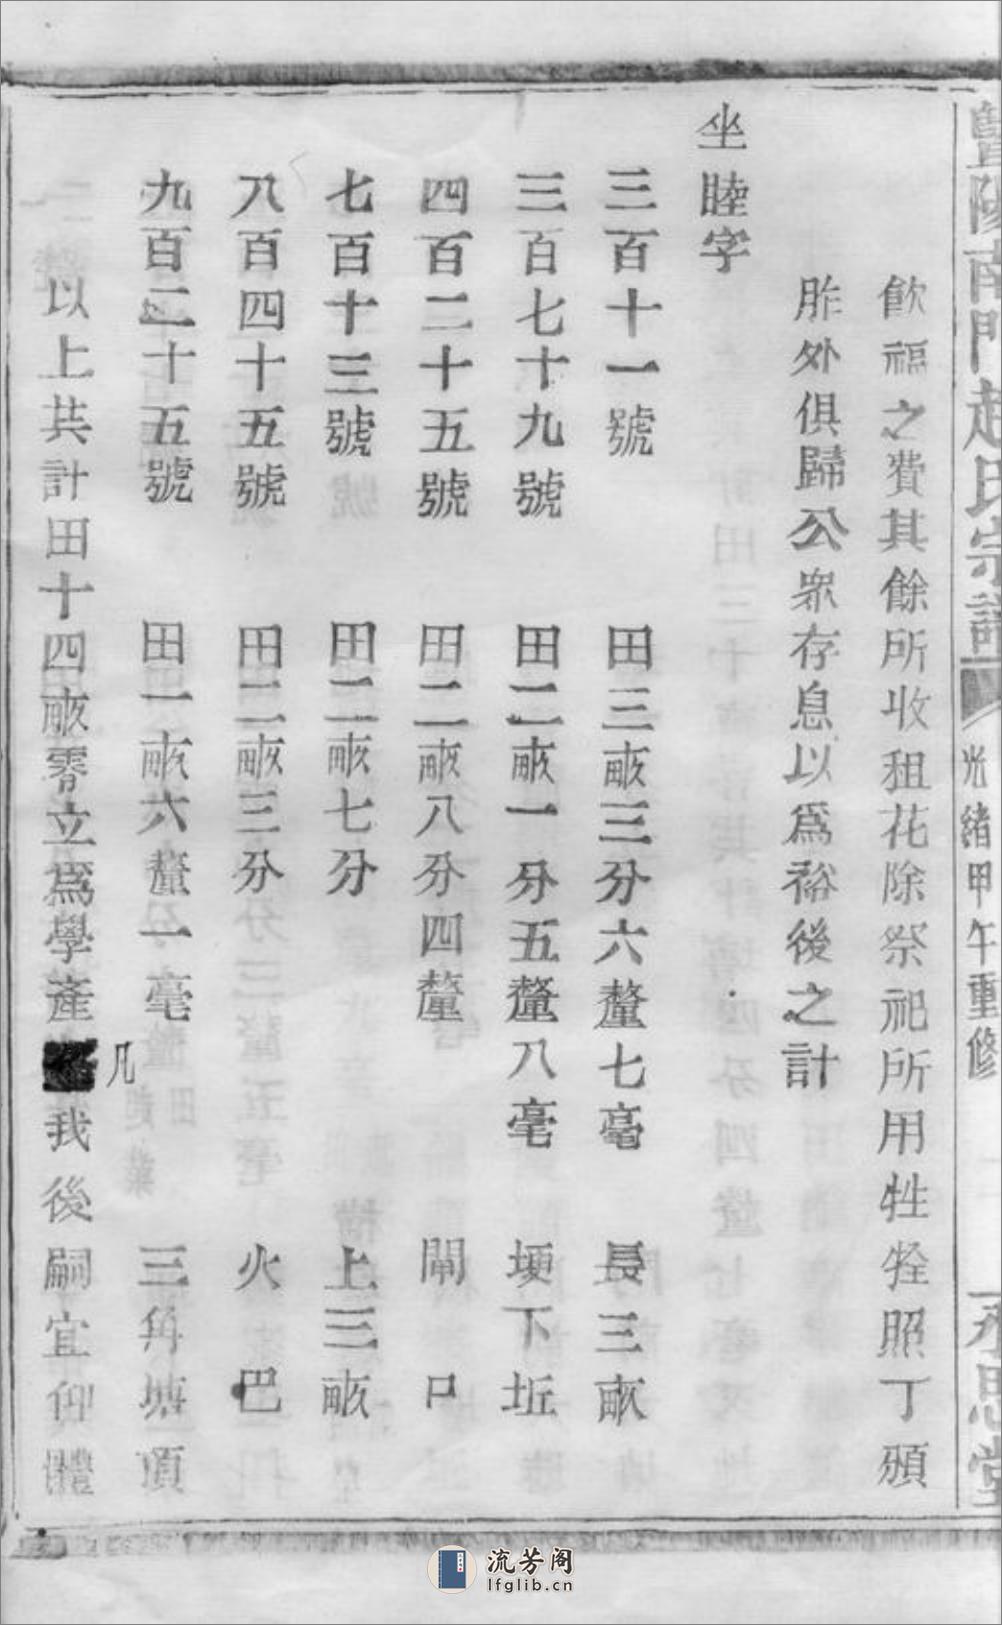 暨陽南門趙氏宗譜 光緒甲午重修 永思堂
飲福之費其餘所收租花除祭祀所用牲牷照丁頒
胙外俱歸公衆存息以爲裕後之計
坐睦字
三百十一號 田三畝三分六釐七毫 長三畝
三百七十九號 田二畝一分五釐八毫 埂下坵
四百二十五號 田二畝八分四釐 閘口
七百十三號 田二畝七分 上三畝
八百四十五號 田二畝三分 火巴
九百二十五號 田一畝六釐一毫 三角塘頂
以上共計田十四畝零立爲學產凡我後嗣宜仰體
流芳阁
lfglib.cn